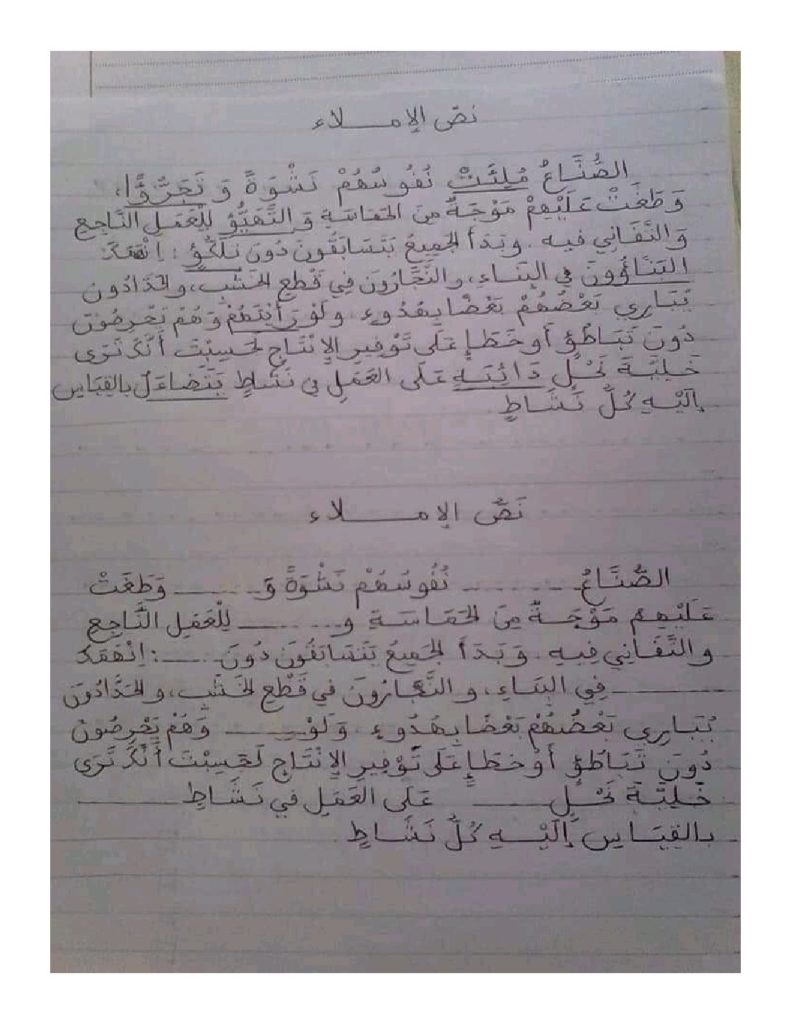 نصّ الإمـــلاء
الصُّنَّاعُ مُلِئَتْ نُفُوسُهُمْ نَشْوَةً وَ تَجَرُّؤًا،
وَطَغَتْ عَلَيْهِمْ مَوْجَةٌ مِنَ الحَمَاسَةِ وَ التَّهَيُّؤِ لِلْعَمَلِ النَّاجِعِ
وَ التَّفَانِي فيه. وبَدَأَ الجَمِيعُ يَتَسَابَقُونَ دُونَ تَلَكُّؤٍ : اِنْهَمَكَ
البَنَّاؤُونَ فِي البِنَاءِ، والنَّجَّارُونَ فِي قَطْعِ الخَشَبِ، والحَدَّادُونَ
يُبَارِي بَعْضُهُمْ بَعْضًا بِهُدُوءٍ. ولَوْ رَأَيْتَهُمْ وَهُمْ يَحْرِصُونَ
دُونَ تَبَاطُؤٍ أَوْ خَطَإٍ عَلَى تَوْفِيرِ الإِنْتَاجِ لَحَسِبْتَ أَنَّكَ تَرَى
خَلِيَّةَ نَحْلٍ دَائِبَةٍ عَلَى العَمَلِ فِي نَشَاطٍ يَتَضَاءَلُ بِالقِيَاسِ
إِلَيْهِ كُلُّ نَشَاطٍ.
نَصُّ الإمـــلاء
الصُّنَّاعُ ........ نُفُوسُهُمْ نَشْوَةً وَ ........ وَطَغَتْ
عَلَيْهِمْ مَوْجَةٌ مِنَ الحَمَاسَةِ و ........ لِلْعَمَلِ النَّاجِعِ
و التَّفَانِي فِيهِ. وَبَدَأَ الجَمِيعُ يَتَسَابَقُونَ دُونَ ........ : اِنْهَمَكَ
........ فِي البِنَاءِ، و النَّجَّارُونَ في قَطْعِ الخَشَبِ، والحَدَّادُونَ
يُبَارِي بَعْضُهُمْ بَعْضًا بِهُدُوءٍ. وَلَوْ ........ وَهُمْ يَحْرِصُونَ
دُونَ تَبَاطُؤٍ أَوْ خَطَإٍ عَلَى تَوْفِيرِ الإِنْتَاجِ لَحَسِبْتَ أَنَّكَ تَرَى
خَلِيَّةَ نَحْلٍ ........ عَلَى العَمَلِ في نَشَاطٍ ........
بالقِيَاسِ إِلَيْهِ كُلُّ نَشَاطٍ.